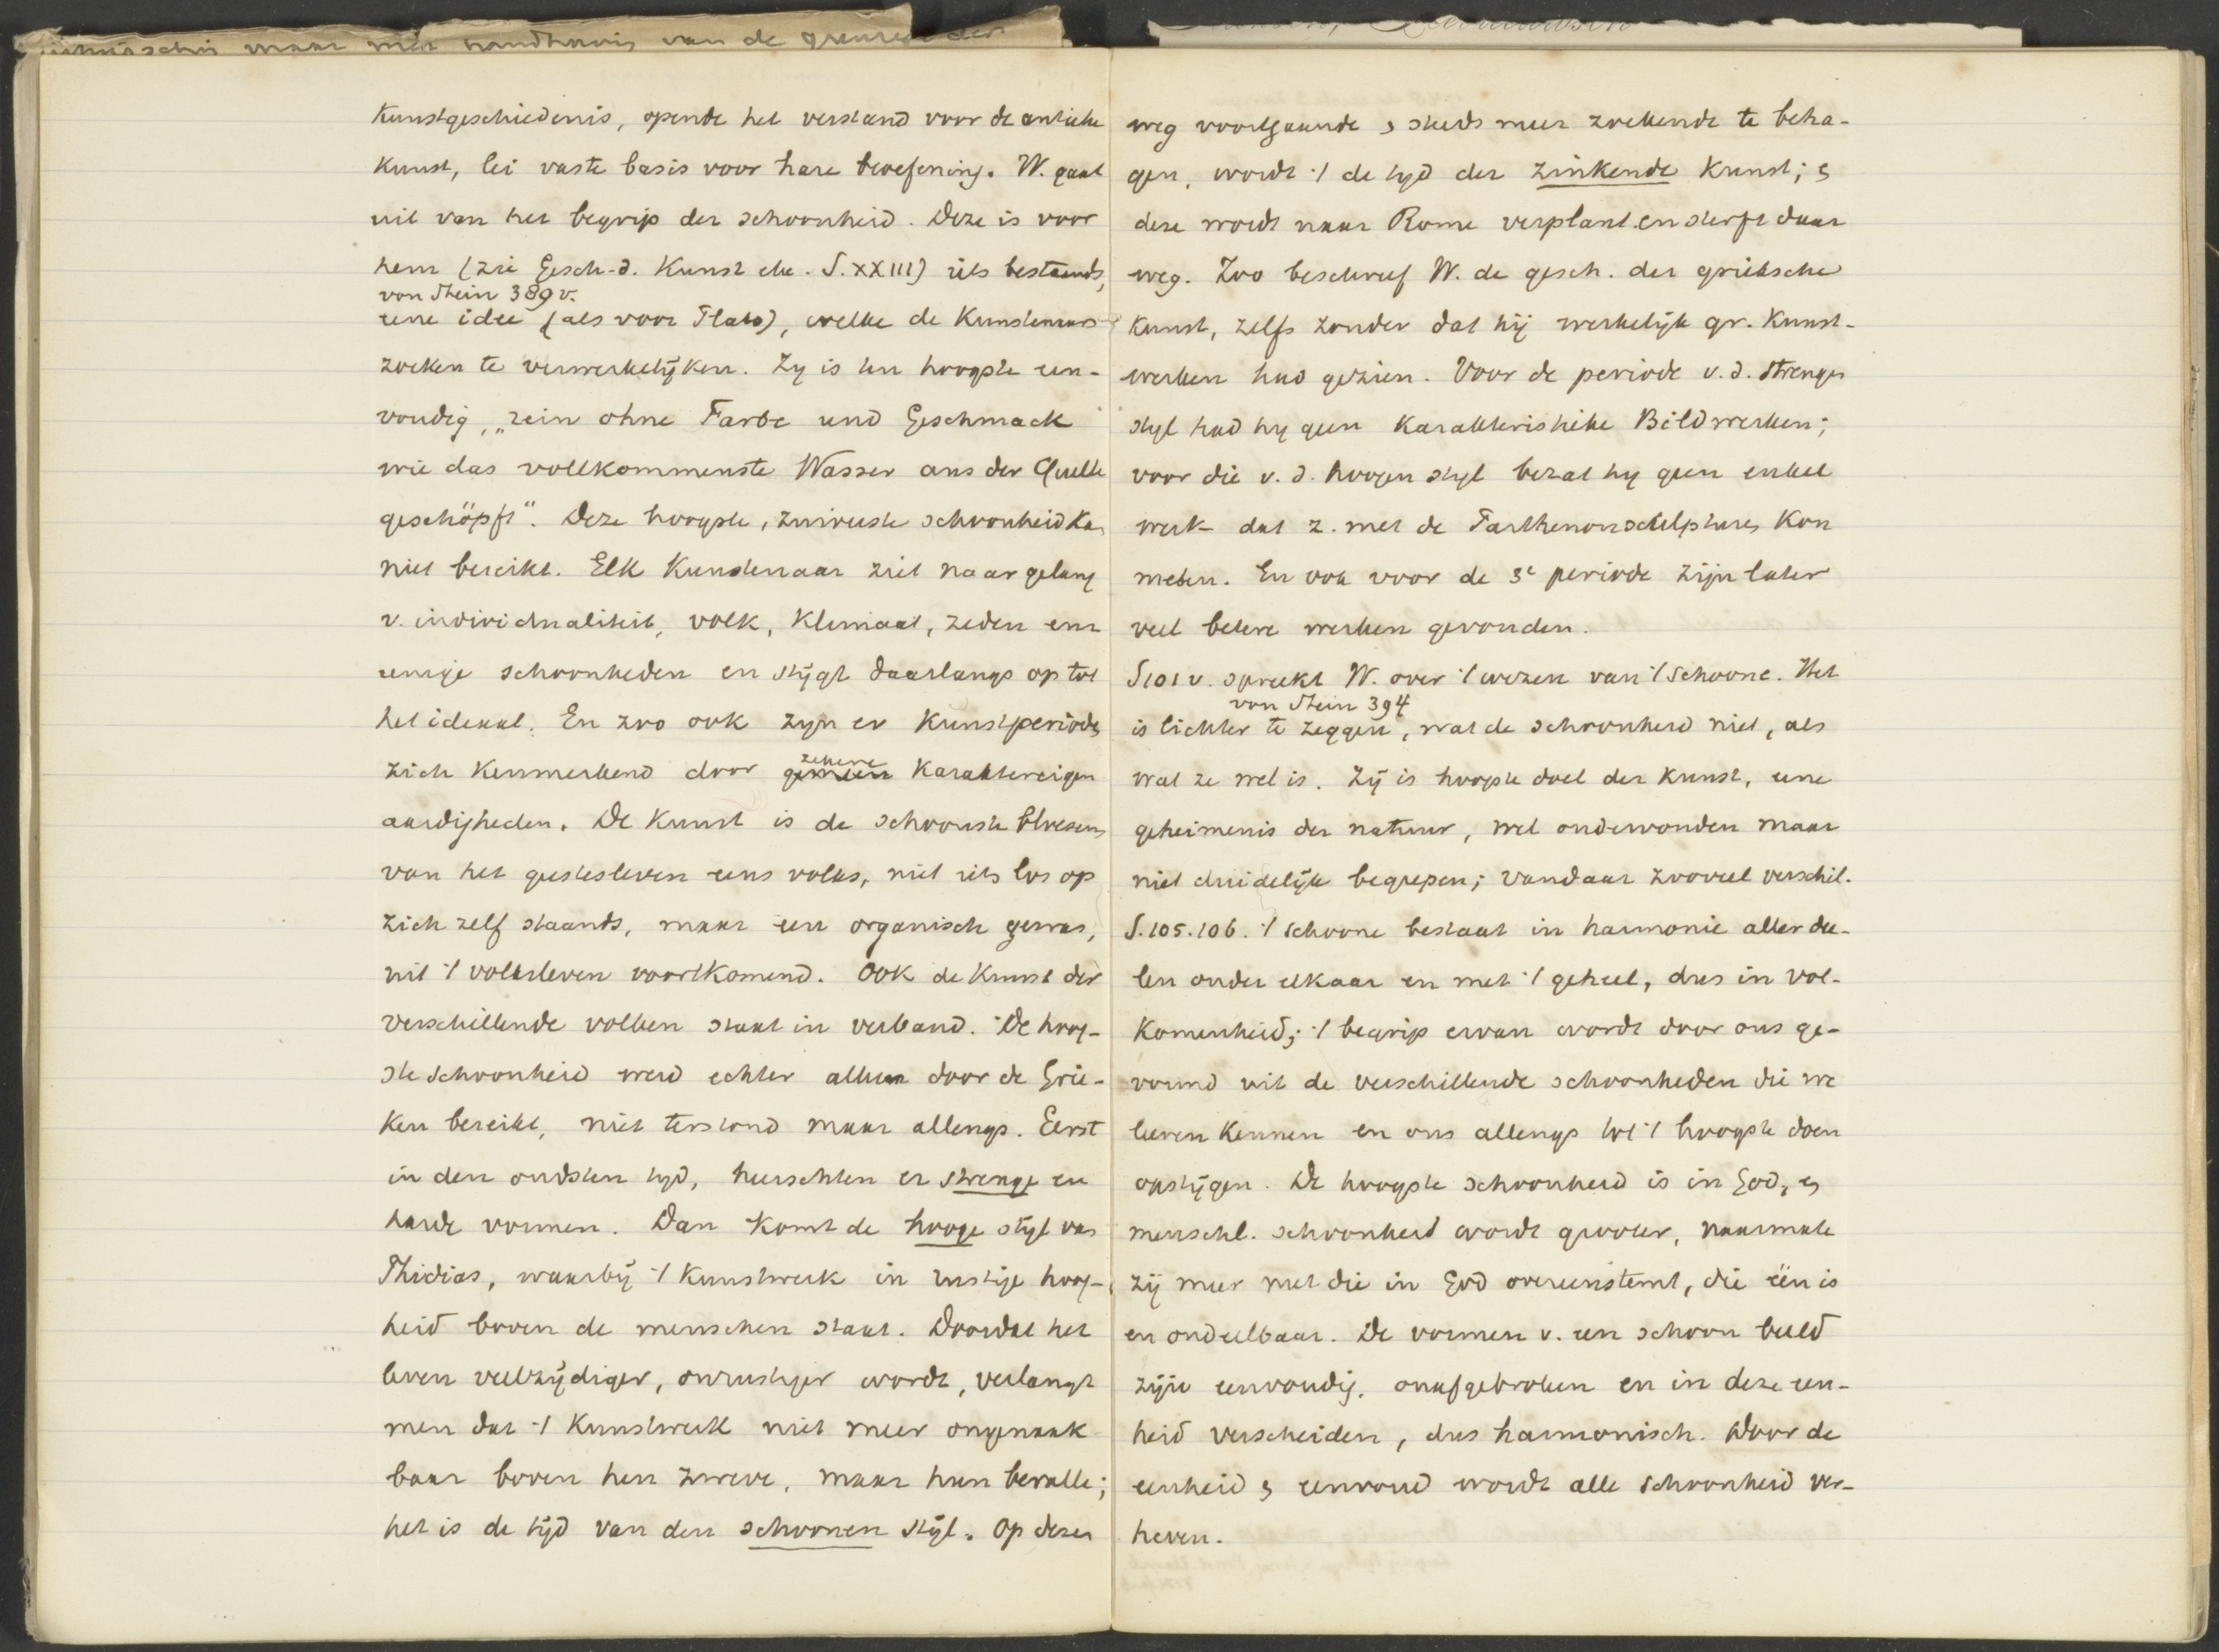 maar met handhaving van de grenzen der
Kunstgeschiedenis, opende het verstand voor de antieke
Kunst, lei vaste basis voor hare beoefening. W. gaat
uit van het begrip der schoonheid. Deze is voor
hem (zie Gesch. d. Kunst etc. S. XXIII) iets bestaands,
von Stein 389 v.
eene idee (als voor Plato), welke de Kunstenaars
zoeken te verwerkelijken. Zy is ten hoogste een-
voudig, "rein ohne Farbe und Geschmack
wie das vollkommenste Wasser aus der Quelle
geschöpft". Deze hoogste, zuiverste schoonheid kan
niet bereikt. Elk Kunstenaar ziet naar gelang
v. individualiteit, volk, Klimaat, zeden enz
eenige schoonheden en stijgt daarlangs op tot
het ideaal. En zoo ook zyn er Kunstperioden
zekere
zich Kenmerkend door gemeen Karaktereigen
aardigheden. De Kunst is de schoonste bloesem
van het geestesleven eens volks, niet iets los op
zich zelf staands, maar een organisch gewas,
uit 't volksleven voortkomend. Ook de Kunst der
verschillende volken staat in verband. De hoog-
ste schoonheid werd echter alleen door de Grie-
ken bereikt, niet terstond maar allengs. Eerst
in den oudsten tyd, heerschten er strenge en
harde vormen. Dan komt de hooge stijl van
Phidias, waarbij 't Kunstwerk in rustige hoog-
heid boven de menschen staat. Doordat het
leven veelzijdiger, onrustiger wordt, verlangt
men dat 't Kunstwerk niet meer ongenaak
baar boven hen zweve, maar hun bevalle;
het is de tijd van den schoonen stijl. Op dezen
weg voortgaande & steeds meer zoekende te beha-
gen, wordt 't de tyd der zinkende Kunst; &
deze wordt naar Rome verplant en sterft daar
weg. Zoo beschreef W. de gesch. der grieksche
Kunst, zelfs zonder dat hij werkelijk gr. Kunst-
werken had gezien. Voor de periode v. d. strengen
styl had hy geen Karakteristieke Bildwerken;
voor die v. d. hoogen styl bezat hy geen enkel
werk dat z. met de Parthenonsculptures Kon
meten. En ook voor de 3e periode zijn later
veel betere werken gevonden.
S 101 v. spreekt W. over 't wezen van 't Schoone. Het
von Stein 394
is lichter te zeggen, wat de schoonheid niet, als
wat ze wel is. Zij is hoogste doel der Kunst, eene
geheimenis der natuur, wel ondervonden maar
niet duidelijk begrepen; vandaar zooveel verschil.
S. 105. 106. 't Schoone bestaat in harmonie aller dee-
len onder elkaar en met 't geheel, dus in vol-
Komenheid; 't begrip ervan wordt door ons ge-
vormd uit de verschillende schoonheden die we
leeren Kennen en ons allengs tot 't hoogste doen
opstijgen. De hoogste schoonheid is in God, &
menschl. schoonheid wordt grooter, naarmate
zij meer met die in God overeenstemt, die één is
en ondeelbaar. De vormen v. een schoon beeld
zijn eenvoudig, onafgebroken en in deze een-
heid verscheiden, dus harmonisch. Door de
eenheid & eenvoud wordt alle schoonheid ver-
heven.